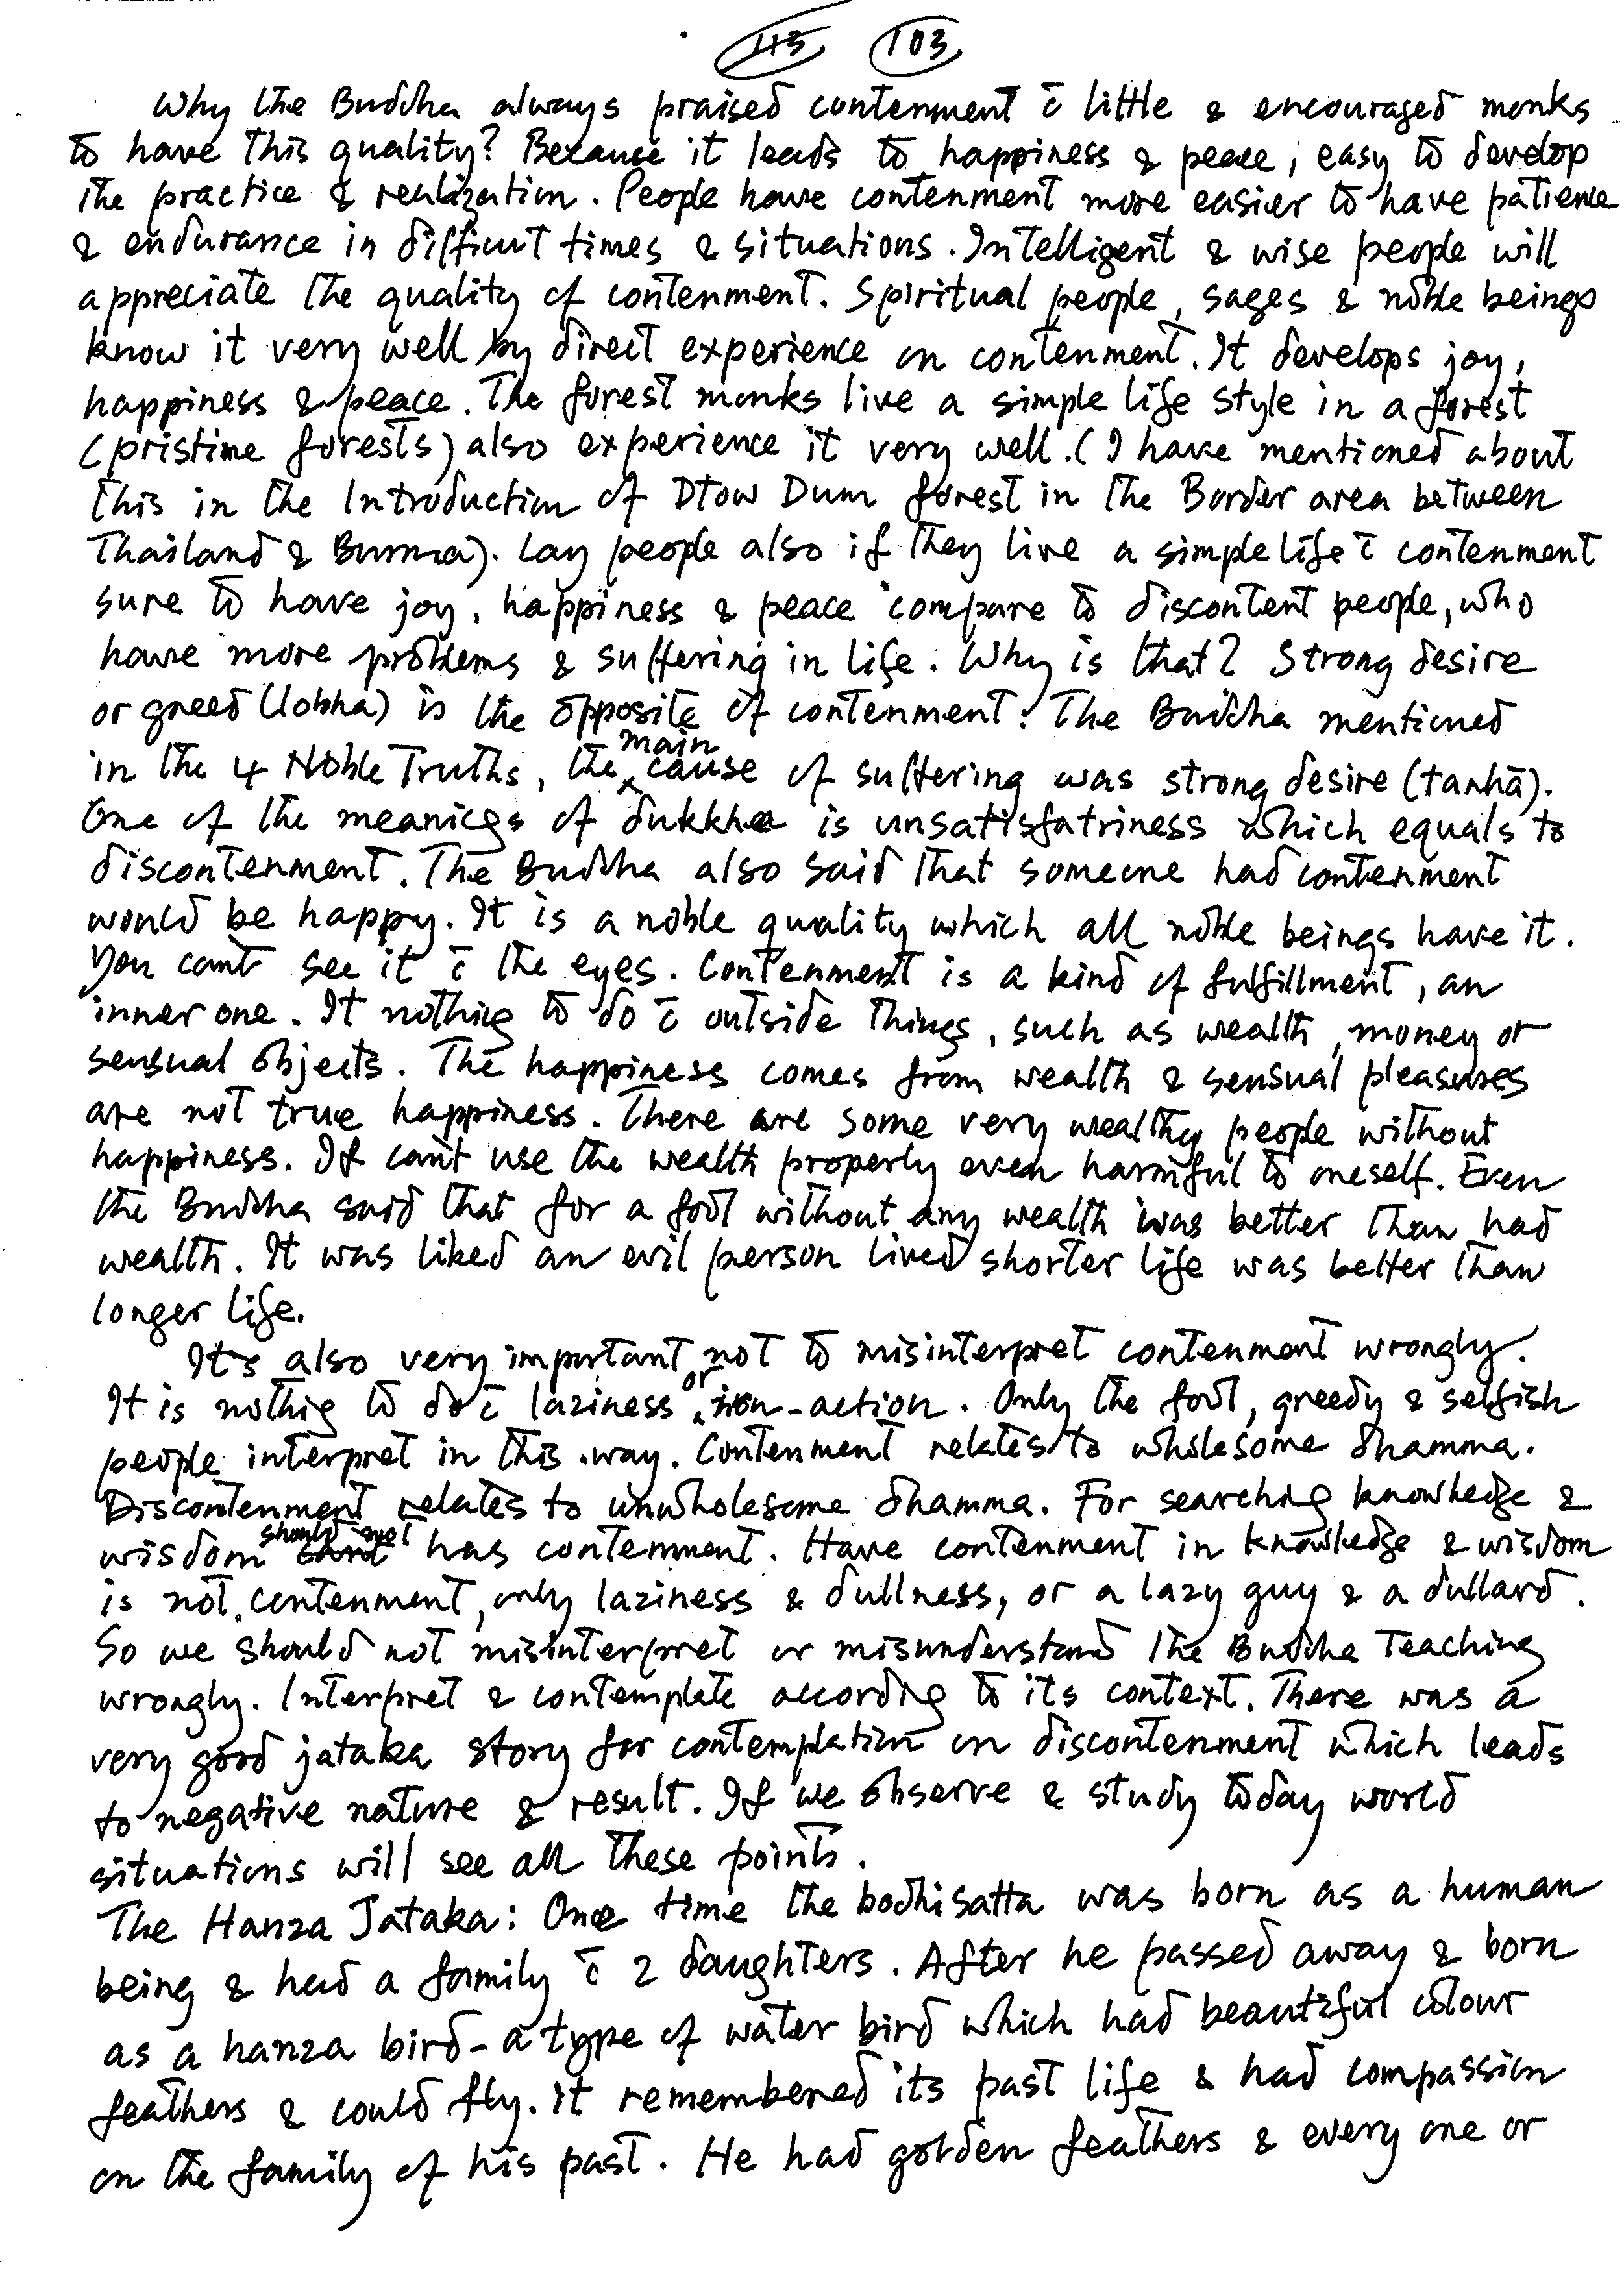 113 103
Why the Buddha always praised contenment c̄ little & encouraged monks
to have this quality? Because it leads to happiness & peace; easy to develop
the practice & realization. People have contenment more easier to have patience
& endurance in difficult times & situations. Intelligent & wise people will
appreciate the quality of contenment. Spiritual people, sages & noble beings
know it very well by direct experience on contenment. It develops joy,
happiness & peace. The forest monks live a simple life style in a forest
(pristine forests) also experience it very well. (I have mentioned about
this in the Introduction of Dtow Dum forest in the Border area between
Thailand & Burma). Lay people also if they live a simple life c̄ contenment
sure to have joy, happiness & peace compare to discontent people, who
have more problems & suffering in life. Why is that? Strong desire
or greed (lobha) is the opposite of contenment. The Buddha mentioned
in the 4 Noble Truths, the main cause of suffering was strong desire (taṇhā).
One of the meanings of dukkha is unsatisfatriness which equals to
discontenment. The Buddha also said that someone had contenment
would be happy. It is a noble quality which all noble beings have it.
You can't see it c̄ the eyes. Contenment is a kind of fulfillment, an
inner one. It nothing to do c̄ outside things, such as wealth, money or
sensual objects. The happiness comes from wealth & sensual pleasures
are not true happiness. There are some very wealthy people without
happiness. If can't use the wealth properly even harmful to oneself. Even
the Buddha said that for a fool without any wealth was better than had
wealth. It was liked an evil person lived shorter life was better than
longer life.
It's also very important not to misinterpret contenment wrongly.
It is nothing to do c̄ laziness or non-action. Only the fool, greedy & selfish
people interpret in this way. Contenment relates to wholesome dhamma.
Discontenment relates to unwholesome dhamma. For searching knowledge &
wisdom should not has contenment. Have contenment in knowledge & wisdom
is not contenment, only laziness & dullness, or a lazy guy & a dullard.
So we should not misinterpret or misunderstand the Buddha Teaching
wrongly. Interpret & contemplate according to its context. There was a
very good jataka story for contemplation on discontenment which leads
to negative nature & result. If we observe & study today world
situations will see all these points.
The Hanza Jataka: One time the bodhisatta was born as a human
being & had a family c̄ 2 daughters. After he passed away & born
as a hanza bird - a type of water bird which had beautiful colour
feathers & could fly. It remembered its past life & had compassion
on the family of his past. He had golden feathers & every one or